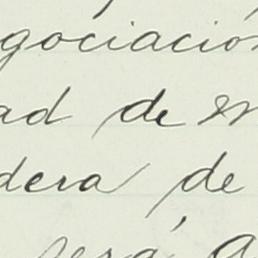 egociación
ad de m
dera de
será, a